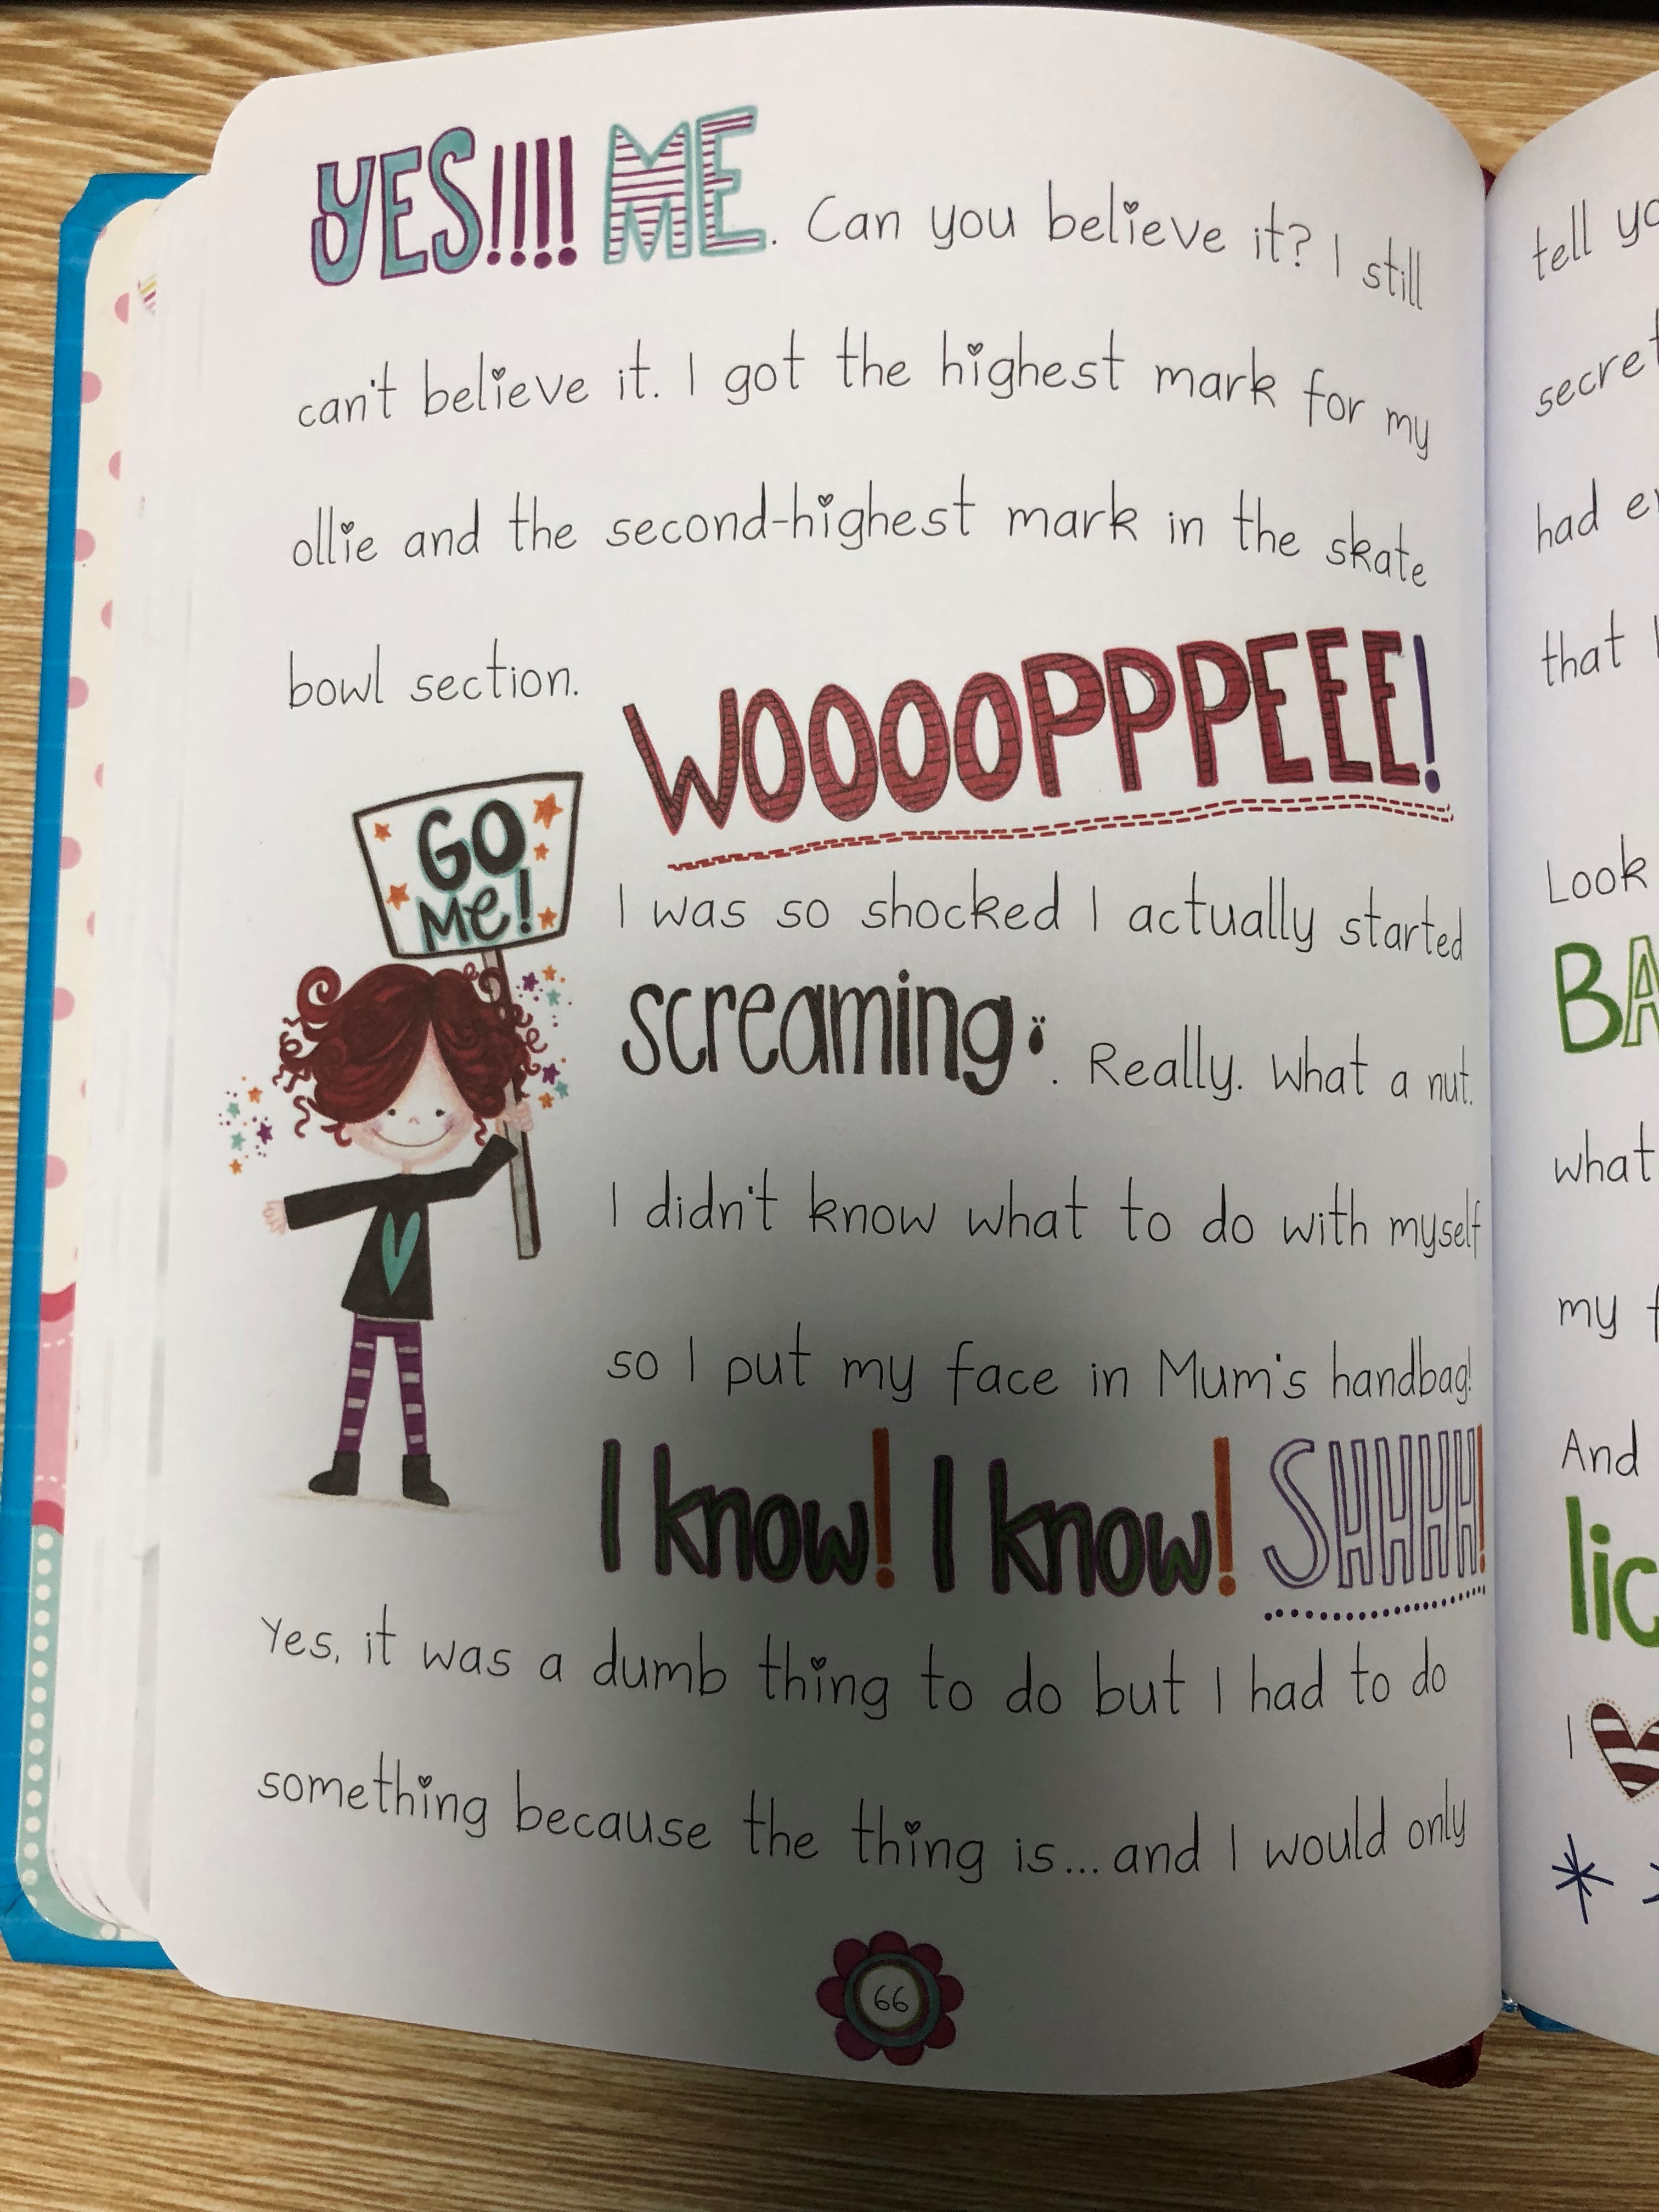 YES!!!! ME. Can you believe it? I still
can't believe it. I got the highest mark for my
ollie and the second-highest mark in the skate
bowl section.
WOOOOPPPEEE!
GO
Me!
I was so shocked I actually started
screaming. Really. What a nut.
I didn't know what to do with myself
so I put my face in Mum's handbag!
I know! I know! SHHHH!
Yes, it was a dumb thing to do but I had to do
something because the thing is... and I would only
66
tell
secret
had
that
Look
what
my
And
I